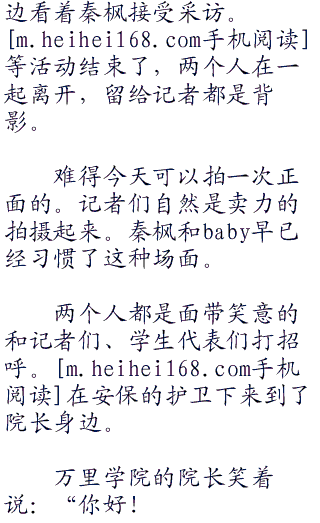 边看着秦枫接受采访。
[m.heihei168.com手机阅读]
等活动结束了，两个人在一
起离开，留给记者都是背
影。
难得今天可以拍一次正
面的。记者们自然是卖力的
拍摄起来。秦枫和baby早已
经习惯了这种场面。
两个人都是面带笑意的
和记者们、学生代表们打招
呼。[m.heihei168.com手机
阅读]在安保的护卫下来到了
院长身边。
万里学院的院长笑着
说：“你好！